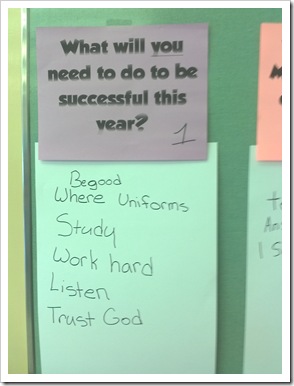 What will you
need to do to be
successful this
year?
1
Be good
Where Uniforms
Study
Work hard
Listen
Trust God